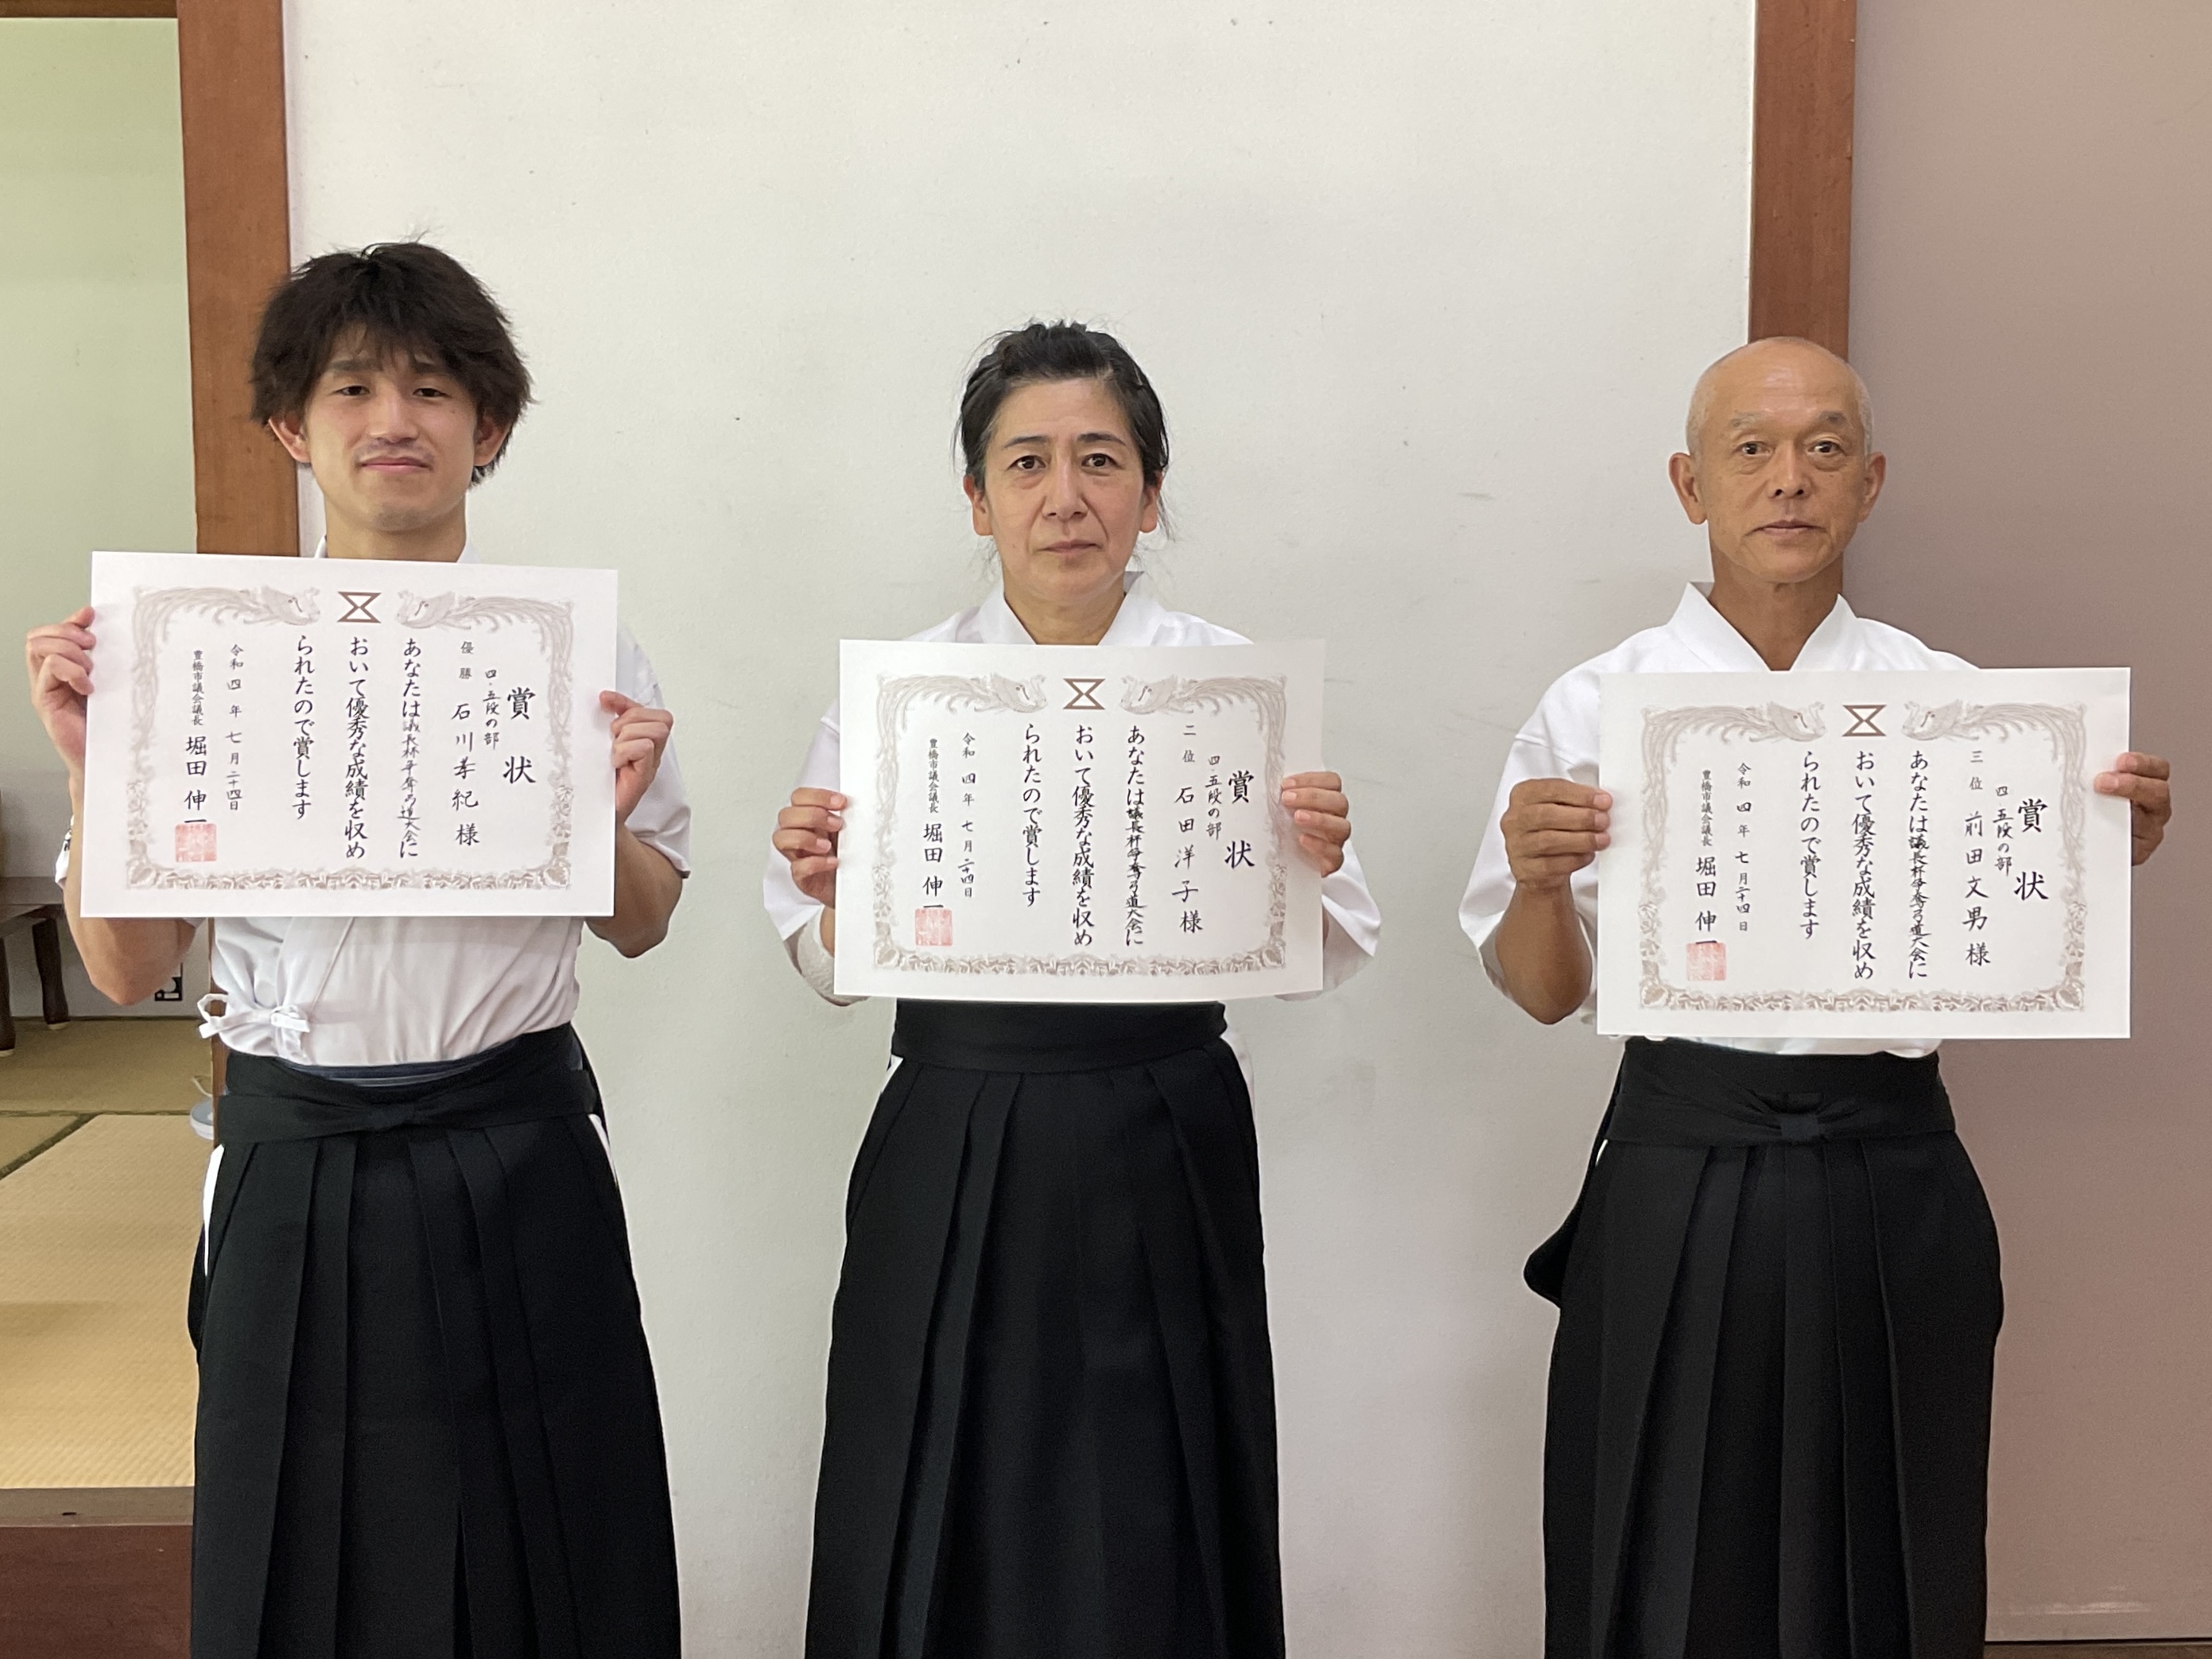 賞状
四・五段の部
優勝 石川孝紀様
あなたは議長杯争奪弓道大会に
おいて優秀な成績を収め
られたので賞します
令和四年七月二十四日
豊橋市議会議長 堀田伸一
賞状
四・五段の部
二位 石田洋子様
あなたは議長杯争奪弓道大会に
おいて優秀な成績を収め
られたので賞します
令和四年七月二十四日
豊橋市議会議長 堀田伸一
賞状
四・五段の部
三位 前田文男様
あなたは議長杯争奪弓道大会に
おいて優秀な成績を収め
られたので賞します
令和四年七月二十四日
豊橋市議会議長 堀田伸一